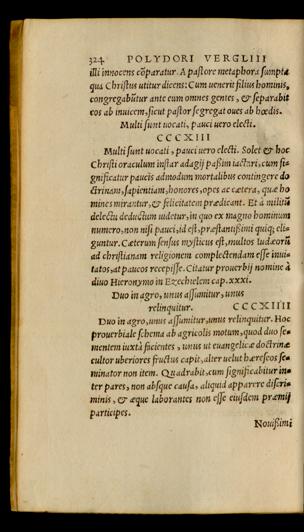 324 POLYDORI VERGLIII
illi innocens cõparatur. A pastore metaphora sumpta
qua Christus utitur dicens: Cum uenerit filius hominis,
congregabũtur ante eum omnes gentes, & separabit
eos ab inuicem, sicut pastor segregat oues ab hœdis.
Multi sunt uocati, pauci uero electi.
CCCXIII
Multi sunt uocati, pauci uero electi. Solet & hoc
Christi oraculum instar adagij passim iactari, cum si=
gnificatur paucis admodum mortalibus contingere do
ctrinam, sapientiam, honores, opes ac cætera, quæ ho
mines mirantur, & felicitatem prædicant. Et à militũ
delectu deductum uidetur, in quo ex magno hominum
numero, non nisi pauci, id est, præstantissimi quiq; eli=
guntur. Cæterum sensus mysticus est, multos Iudæorũ
ad christianam religionem complectendam esse inui=
tatos, at paucos recepisse. Citatur prouerbij nomine à
diuo Hieronymo in Ezechielem cap. xxxi.
Duo in agro, unus assumitur, unus
relinquitur. CCCXIIII
Duo in agro, unus assumitur, unus relinquitur. Hoc
prouerbiale schema ab agricolis motum, quod duo se=
mentem iuxtà facientes, unus ut euangelicæ doctrinæ
cultor uberiores fructus capit, alter uelut hæreseos se=
minator non item. Quadrabit, cum significabitur in=
ter pares, non absque causa, aliquid apparere discri=
minis, & æque laborantes non esse eiusdem præmij
participes.
Nouissimi